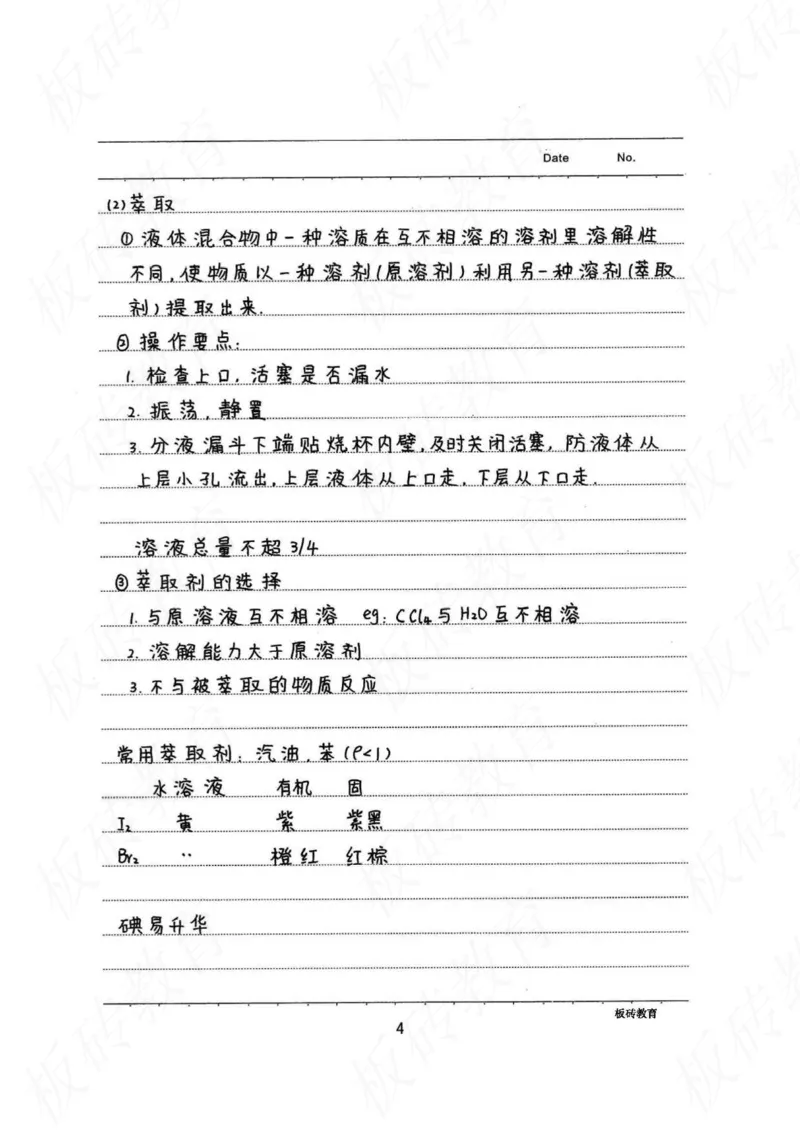 Date No.
(2) 萃取
① 液体混合物中一种溶质在互不相溶的溶剂里溶解性
不同,使物质以一种溶剂(原溶剂)利用另一种溶剂(萃取
剂)提取出来.
② 操作要点:
1. 检查上口,活塞是否漏水
2. 振荡,静置
3. 分液漏斗下端贴烧杯内壁,及时关闭活塞,防液体从
上层小孔流出,上层液体从上口走,下层从下口走.
溶液总量不超 3/4
③ 萃取剂的选择
1. 与原溶液互不相溶 eg: CCl₄与H₂O互不相溶
2. 溶解能力大于原溶剂
3. 不与被萃取的物质反应
常用萃取剂: 汽油,苯(ρ<1)
水溶液 有机 固
I₂ 黄 紫 紫黑
Br₂ ·· 橙红 红棕
碘易升华
板砖教育
4